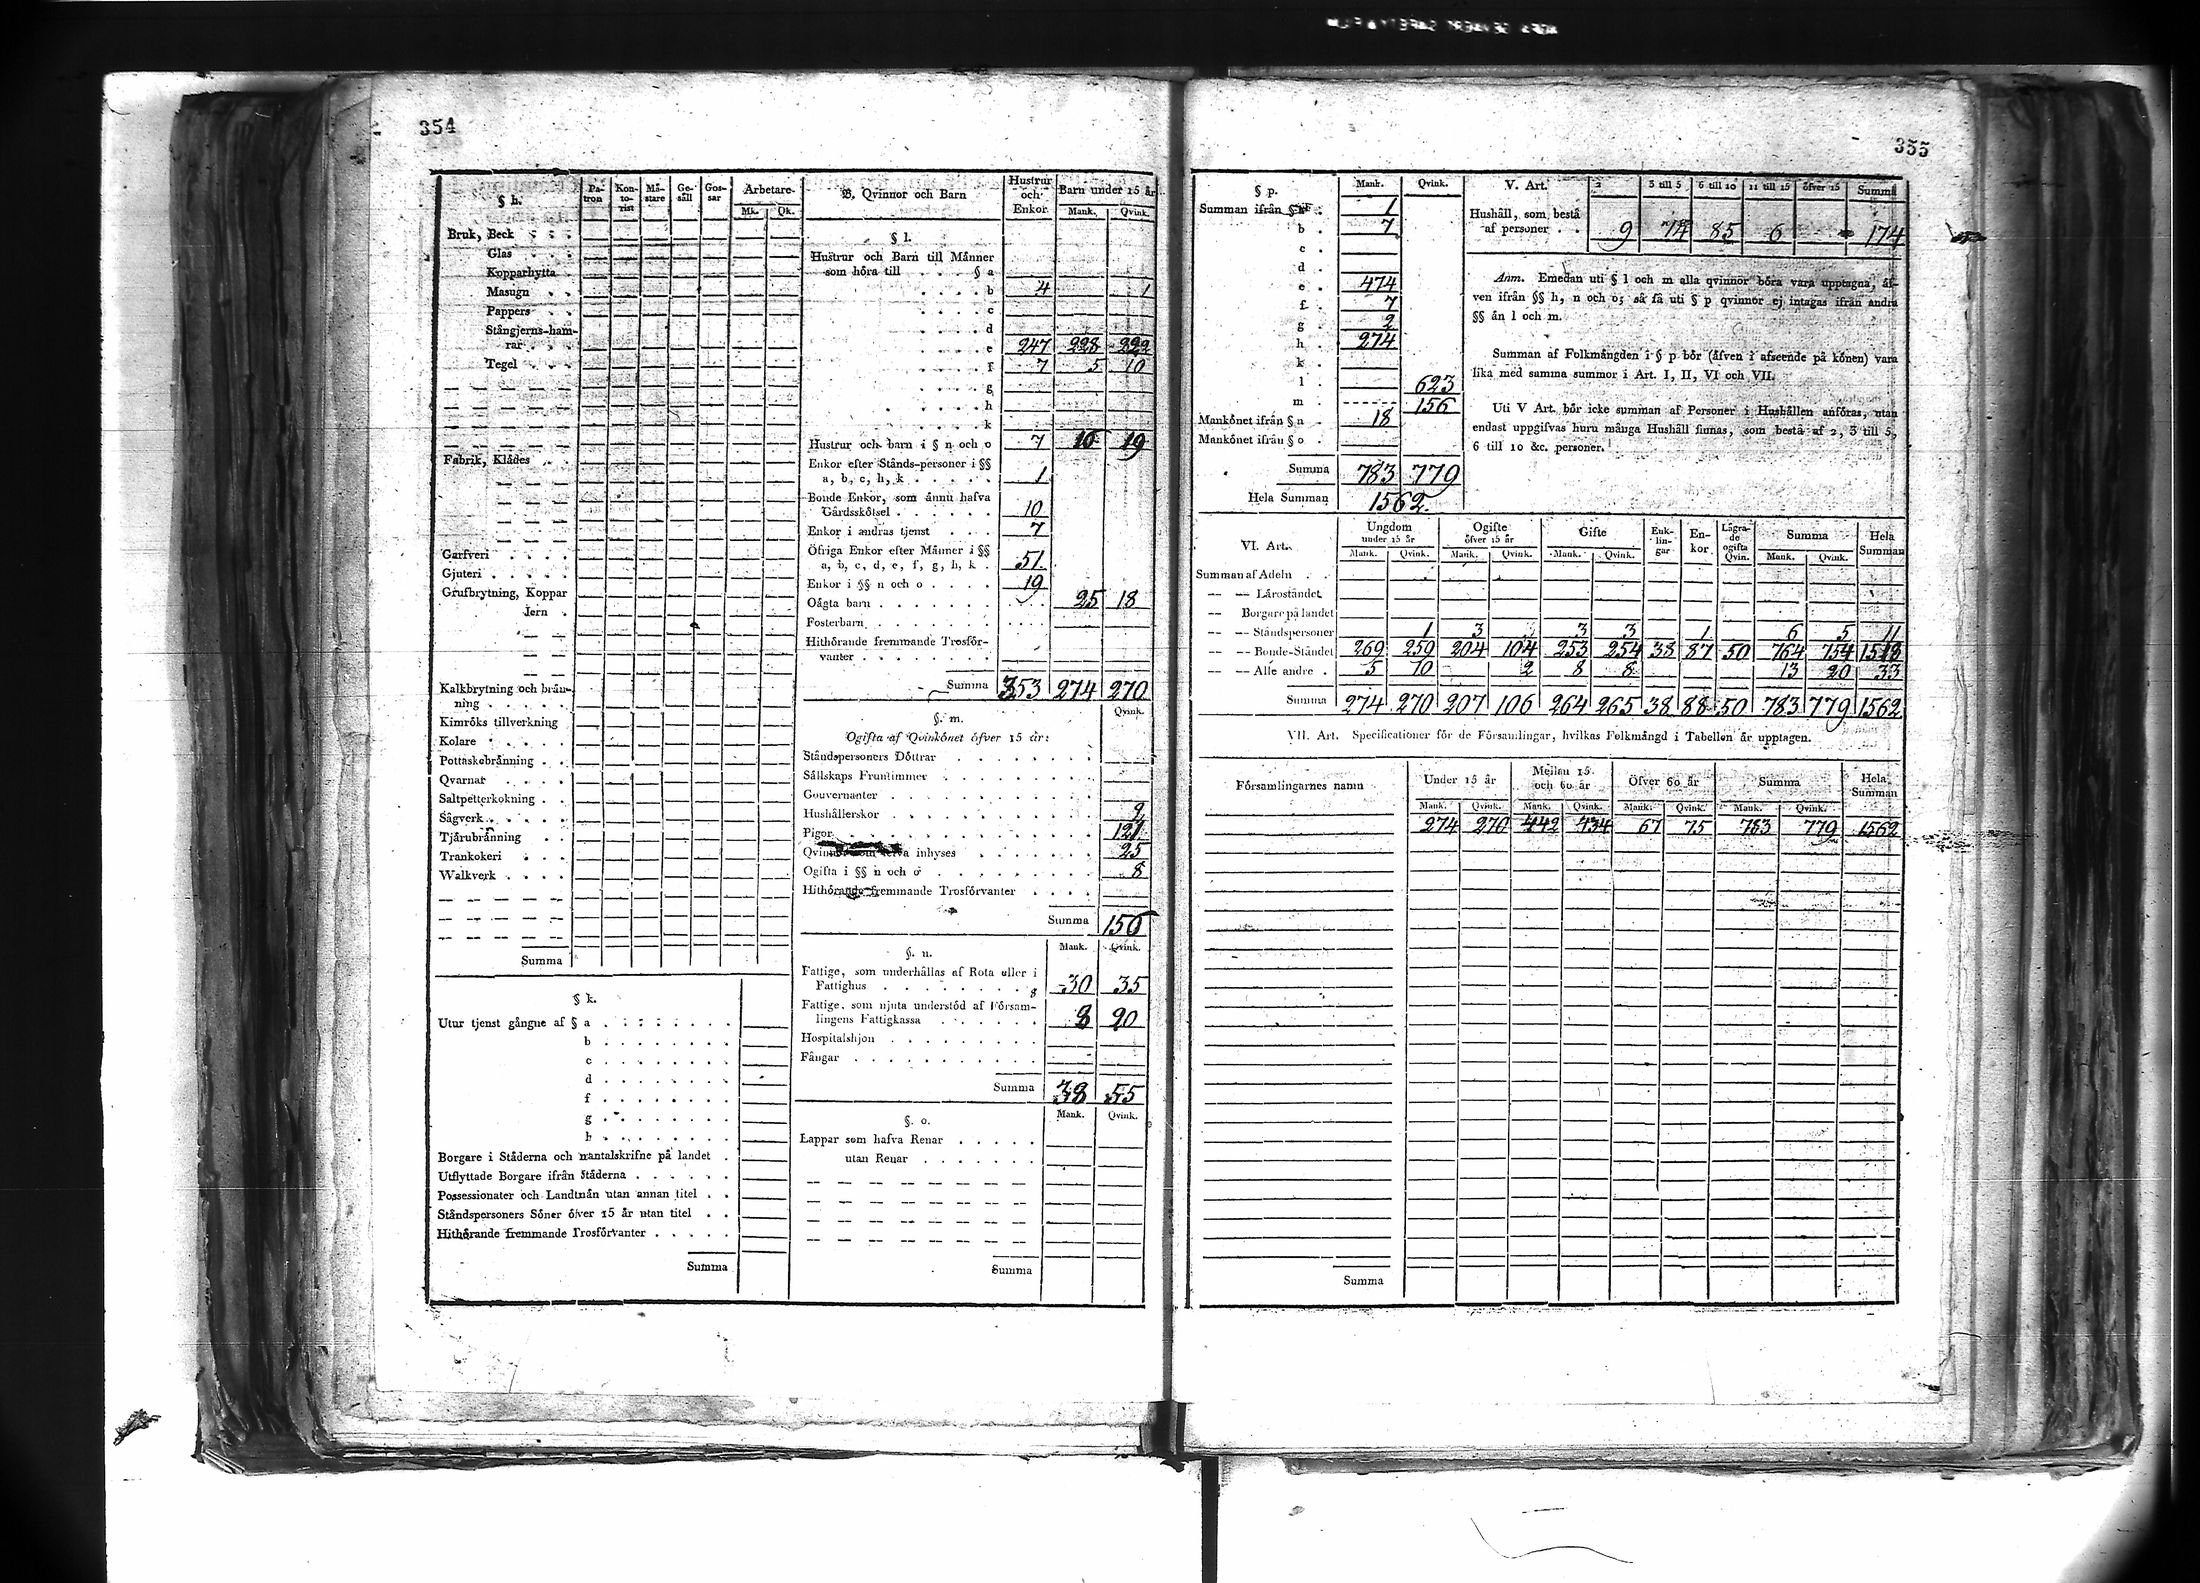 354
§ h.
Pa-
tron
Kon-
to-
rist
Mä-
stare
Ge-
säll
Gos-
sar
Arbetare
Mk. Qk.
Bruk, Beck
Glas
Kopparhytta
Masugn
Pappers
Stångjerns-ham-
rar
Tegel
Fabrik, Klädes
Garfveri
Gjuteri
Grufbrytning, Koppar
Jern
Kalkbrytning och brän-
ning
Kimröks tillverkning
Kolare
Pottaskebränning
Qvarnar
Saltpetterkokning
Sågverk
Tjärubränning
Trankokeri
Walkverk
Summa
§ k.
Utur tjenst gångne af § a
b
c
d
f
g
h
Borgare i Städerna och mantalskrifne på landet
Utflyttade Borgare ifrån Städerna
Possessionater och Landtmän utan annan titel
Ståndspersoners Söner öfver 15 år utan titel
Hithörande fremmande Trosförvanter
Summa
B, Qvinnor och Barn
Hustrur
och
Enkor
Barn under 15 år
Mank. Qvink.
§ l.
Hustrur och Barn till Männer
som höra till § a
b 4 1
c
d
e 247 228 222
f 7 5 10
g
h
k
Hustrur och barn i § n och o 7 16 19
Enkor efter Stånds-personer i §§
a, b, c, h, k 1
Bonde Enkor, som ännu hafva
Gårdsskötsel 10
Enkor i andras tjenst 7
Öfriga Enkor efter Männer i §§
a, b, c, d, e, f, g, h, k 51
Enkor i §§ n och o 19
Oägta barn 25 18
Fosterbarn
Hithörande fremmande Trosför-
vanter
Summa 353 274 270
§. m.
Qvink.
Ogifta af Qvinkönet öfver 15 år:
Ståndspersoners Döttrar
Sällskaps Fruntimmer
Gouvernanter
Hushållerskor 2
Pigor 121
Qvinnor som inhyses 25
Ogifta i §§ n och o 8
Hithörande fremmande Trosförvanter
Summa 156
§. n.
Mank. Qvink.
Fattige, som underhållas af Rota eller i
Fattighus 30 35
Fattige, som njuta understöd af Församl-
lingens Fattigkassa 8 20
Hospitalshjon
Fångar
Summa 38 55
§. o.
Mank. Qvink.
Lappar som hafva Renar
utan Renar
Summa
355
§ p. Mank. Qvink.
Summan ifrån § a 1
b 7
c
d
e 474
f 7
g 2
h 274
k
l 623
m 156
Mankönet ifrån § n 18
Mankönet ifrån § o
Summa 783 779
Hela Summan 1562
V. Art. 2 3 till 5 6 till 10 11 till 15 öfver 15 Summa
Hushåll, som bestå
af personer 9 74 85 6 174
Anm. Emedan uti § l och m alla qvinnor böra vara upptagna, äf-
ven ifrån §§ h, n och o; så få uti § p qvinnor ej intagas ifrån andra
§§ än l och m.
Summan af Folkmängden i § p bör (äfven i afseende på könen) vara
lika med samma summor i Art. I, II, VI och VII.
Uti V Art. bör icke summan af Personer i Hushållen anföras, utan
endast uppgifvas huru många Hushåll finnas, som bestå af 2, 3 till 5,
6 till 10 &c. personer.
VI. Art.
Ungdom
under 15 år
Ogifte
öfver 15 år
Gifte
Enk-
lin-
gar
En-
kor
Lägra-
de
ogifta
Qvin.
Summa
Hela
Summan
Mank. Qvink. Mank. Qvink. Mank. Qvink. Mank. Qvink.
Summan af Adeln
— — Läroståndet
— Borgare på landet
— — Ståndspersoner 1 3 3 3 1 6 5 11
— — Bonde-Ståndet 269 259 204 104 253 254 38 87 50 764 754 1518
— — Alle andre 5 10 2 8 8 13 20 33
Summa 274 270 207 106 264 265 38 88 50 783 779 1562
VII. Art. Specificationer för de Församlingar, hvilkas Folkmängd i Tabellen är upptagen.
Församlingarnes namn
Under 15 år
Mellan 15
och 60 år
Öfver 60 år
Summa
Hela
Summan
Mank. Qvink. Mank. Qvink. Mank. Qvink. Mank. Qvink.
274 270 442 434 67 75 783 779 1562
Summa